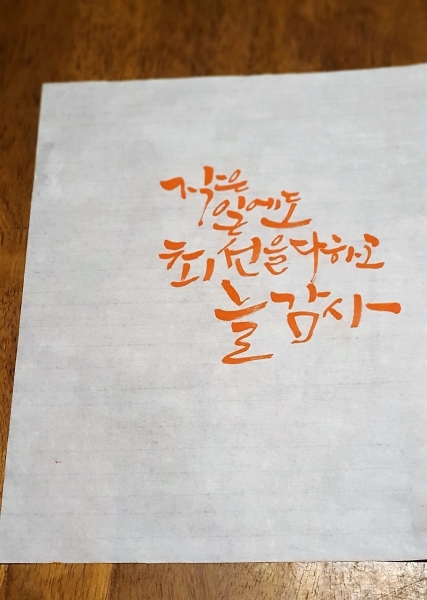 작은
일에도
최선을다하고
늘감사